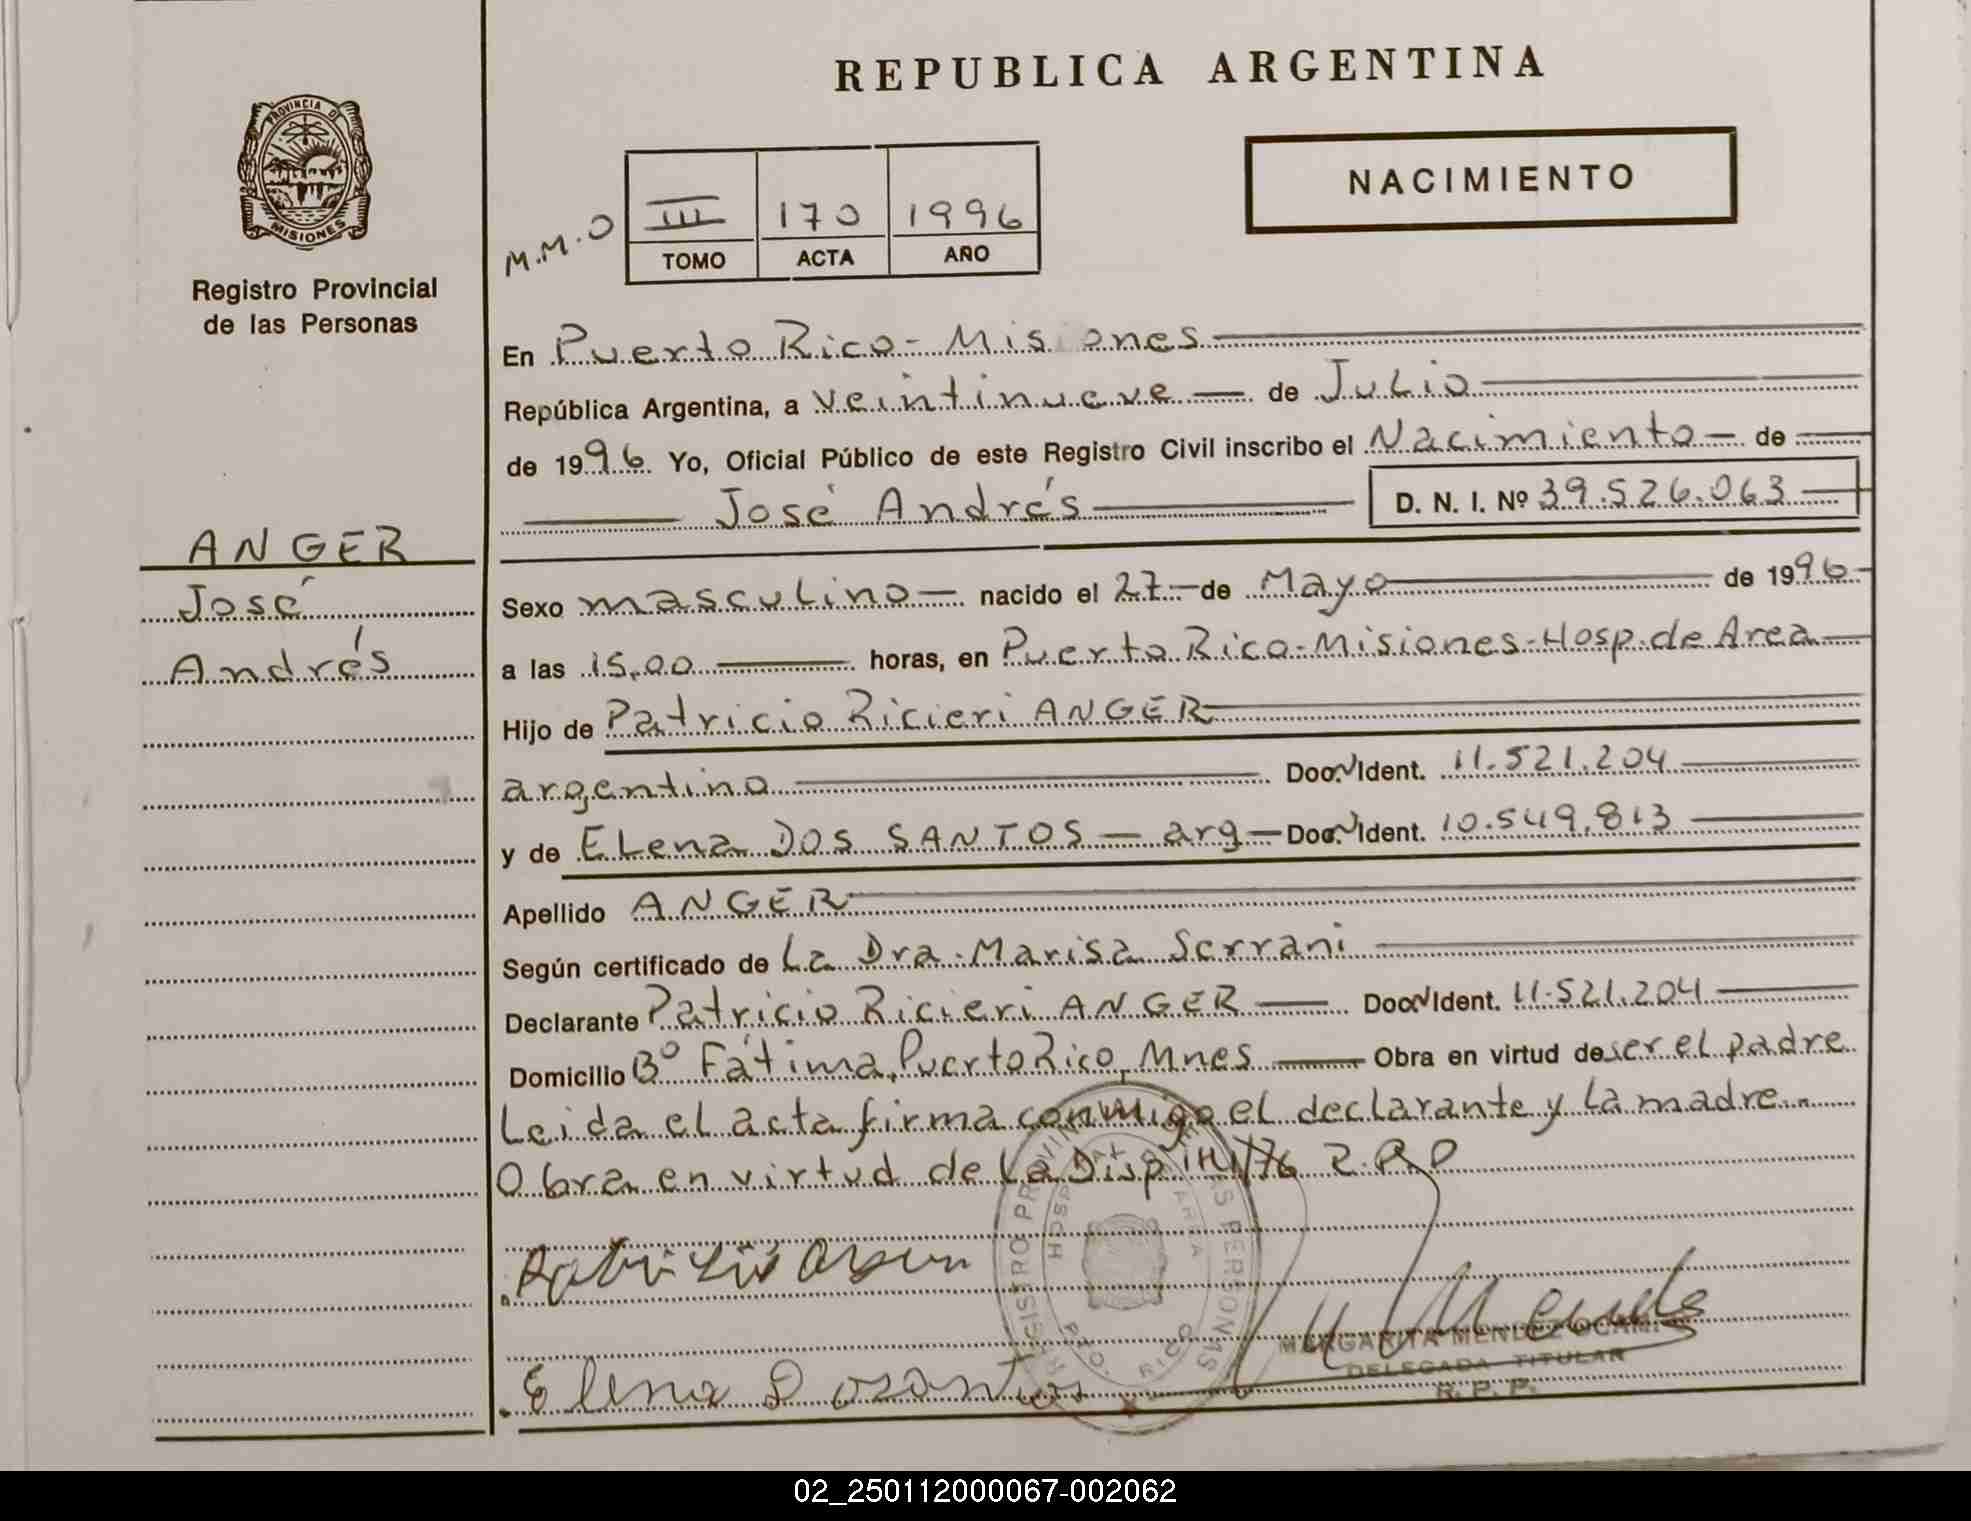 REPUBLICA ARGENTINA
PROVINCIA DE MISIONES
NACIMIENTO
M.M.O
III 170 1996
TOMO ACTA AÑO
Registro Provincial
de las Personas
ANGER
José
Andrés
En Puerto Rico - Misiones
República Argentina, a veintinueve de Julio
de 1996 Yo, Oficial Público de este Registro Civil inscribo el Nacimiento de
José Andrés D. N. I. Nº 39.526.063
Sexo masculino nacido el 27 de Mayo de 1996
a las 15,00 horas, en Puerto Rico-Misiones-Hosp.de Area
Hijo de Patricio Ricieri ANGER
argentino Doc. Ident. 11.521.204
y de Elena DOS SANTOS arg Doc. Ident. 10.549.813
Apellido ANGER
Según certificado de La Dra. Marisa Serrani
Declarante Patricio Ricieri ANGER Doc. Ident. 11.521.204
Domicilio Bº Fátima, Puerto Rico, Mnes Obra en virtud de ser el padre
Leida el acta firma conmigo el declarante y la madre..
Obra en virtud de la Disp 141/76 R.P.P
REGISTRO PROVINCIAL DE LAS PERSONAS
HOSPITAL AREA
PTO. RICO
Elena Dosantos
MARGARITA MENDEZ OCAMPO
DELEGADA TITULAR
R. P. P.
02_250112000067-002062